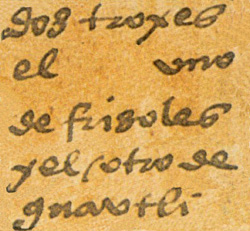 dos troxes
el uno
de frisoles
y el otro de
guautli